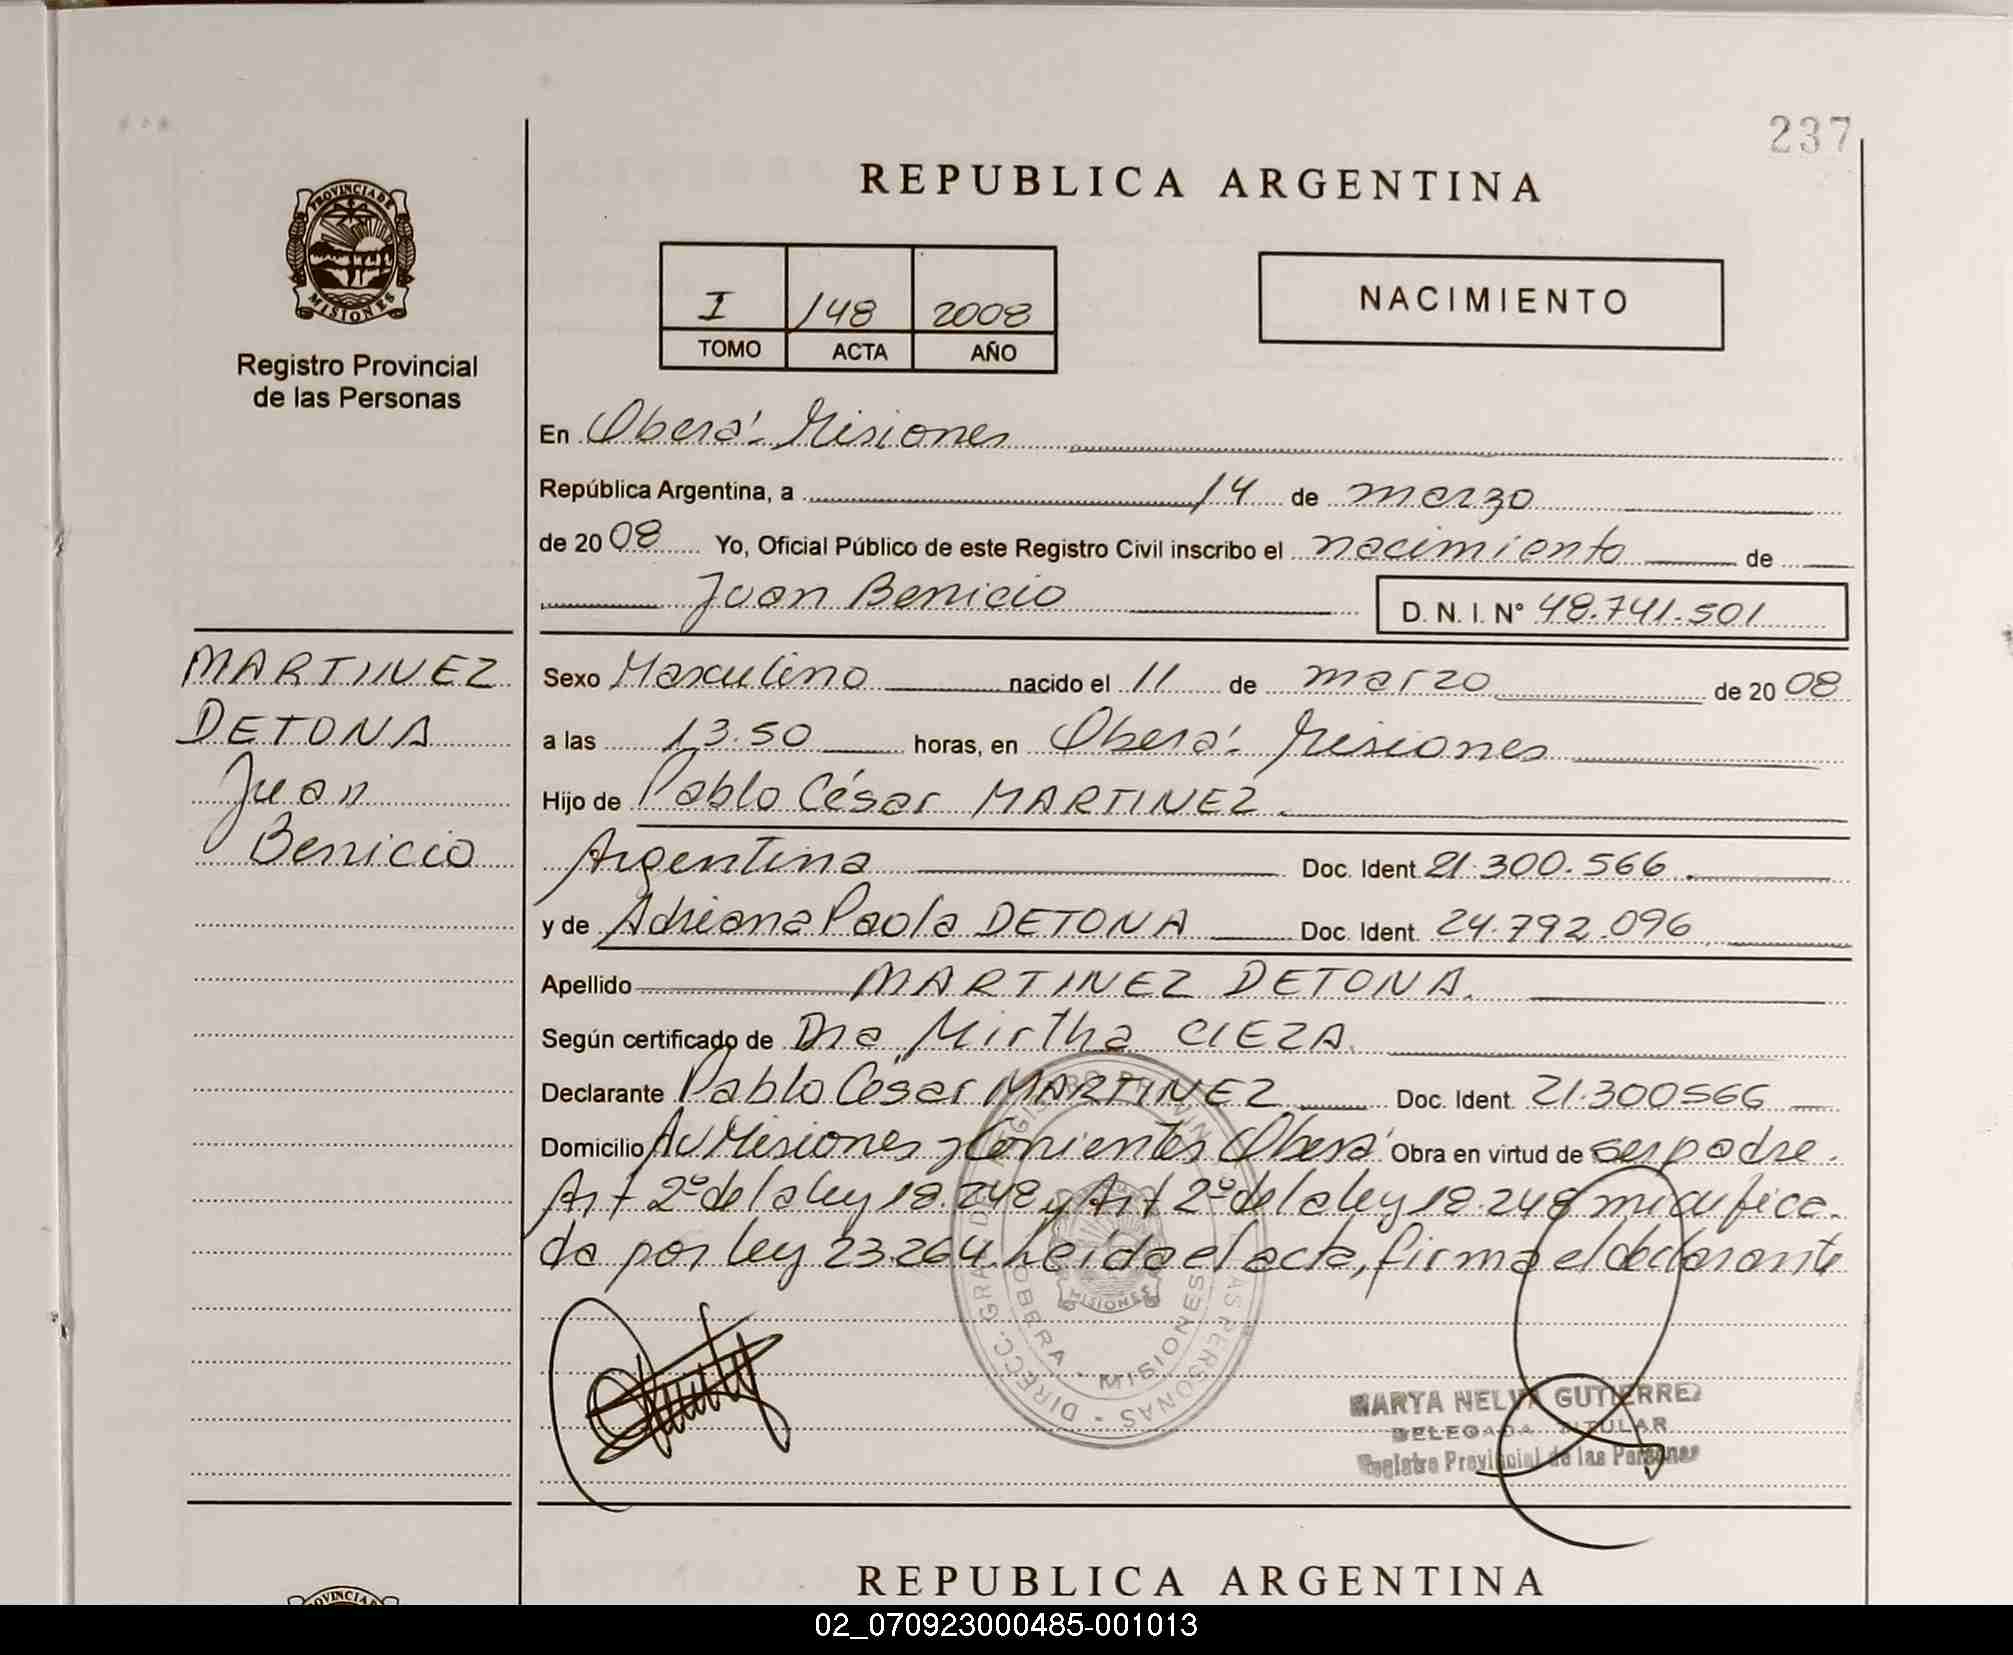 237
REPUBLICA ARGENTINA
PROVINCIA DE
MISIONES
Registro Provincial
de las Personas
I 148 2008
TOMO ACTA AÑO
NACIMIENTO
En Oberá - Misiones
República Argentina, a 14 de marzo
de 2008 Yo, Oficial Público de este Registro Civil inscribo el nacimiento de
Juan Benicio D. N. I. N° 48.741.501
MARTINEZ
DETONA
Juan
Benicio
Sexo Masculino nacido el 11 de marzo de 2008
a las 13.50 horas, en Oberá - Misiones
Hijo de Pablo César MARTINEZ.
Argentina Doc. Ident. 21.300.566.
y de Adriana Paola DETONA Doc. Ident. 24.792.096
Apellido MARTINEZ DETONA.
Según certificado de Dra. Mirtha CIEZA.
Declarante Pablo César MARTINEZ Doc. Ident. 21.300566
Domicilio Av Misiones y Corrientes Oberá Obra en virtud de ser padre.
Art 2º de la ley 18.248 y Art 2º de la ley 18.248 modifica-
da por ley 23.264. Leída el acta, firma el declarante
DIRECC. GRAL. DE REGISTRO PROVINCIAL DE LAS PERSONAS
MISIONES
OBERA - MISIONES
MARTA NELVA GUTIERREZ
DELEGADA TITULAR
Registro Provincial de las Personas
REPUBLICA ARGENTINA
PROVINCIA DE
02_070923000485-001013